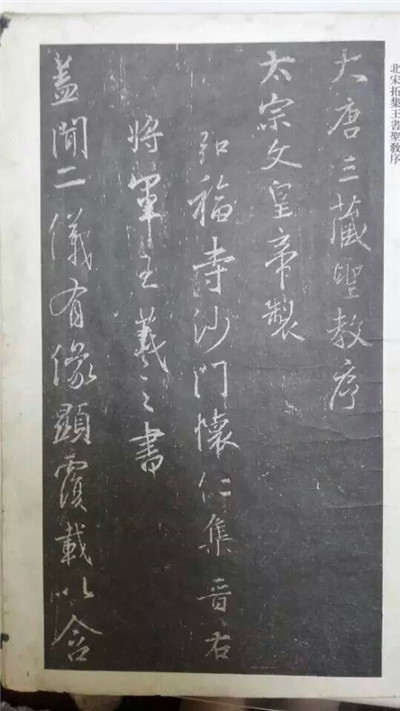 北宋拓集王書聖教序
大唐三藏聖教序
太宗文皇帝製
弘福寺沙門懷仁集晉右
將軍王羲之書
蓋聞二儀有像顯覆載以含